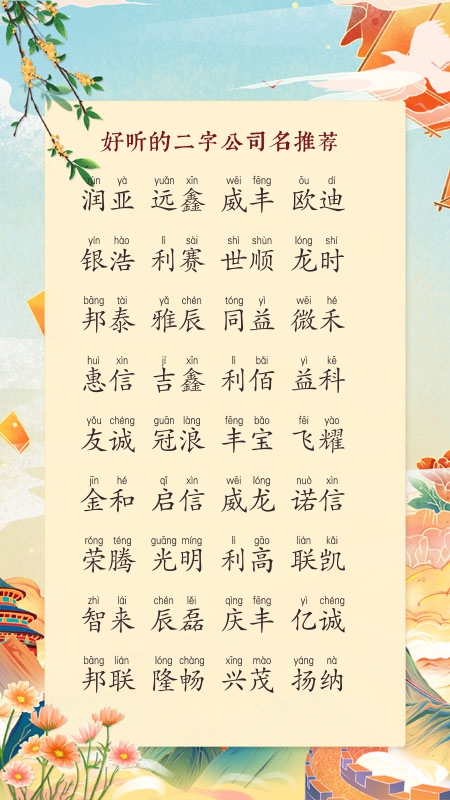 好听的二字公司名推荐
rùn yà yuǎn xīn wēi fēng ōu dí
润亚 远鑫 威丰 欧迪
yín hào lì sài shì shùn lóng shí
银浩 利赛 世顺 龙时
bāng tài yǎ chén tóng yì wēi hé
邦泰 雅辰 同益 微禾
huì xìn jí xīn lì bǎi yì kē
惠信 吉鑫 利佰 益科
yǒu chéng guān làng fēng bǎo fēi yào
友诚 冠浪 丰宝 飞耀
jīn hé qǐ xìn wēi lóng nuò xìn
金和 启信 威龙 诺信
róng téng guāng míng lì gāo lián kǎi
荣腾 光明 利高 联凯
zhì lái chén lěi qìng fēng yì chéng
智来 辰磊 庆丰 亿诚
bāng lián lóng chàng xīng mào yáng nà
邦联 隆畅 兴茂 扬纳